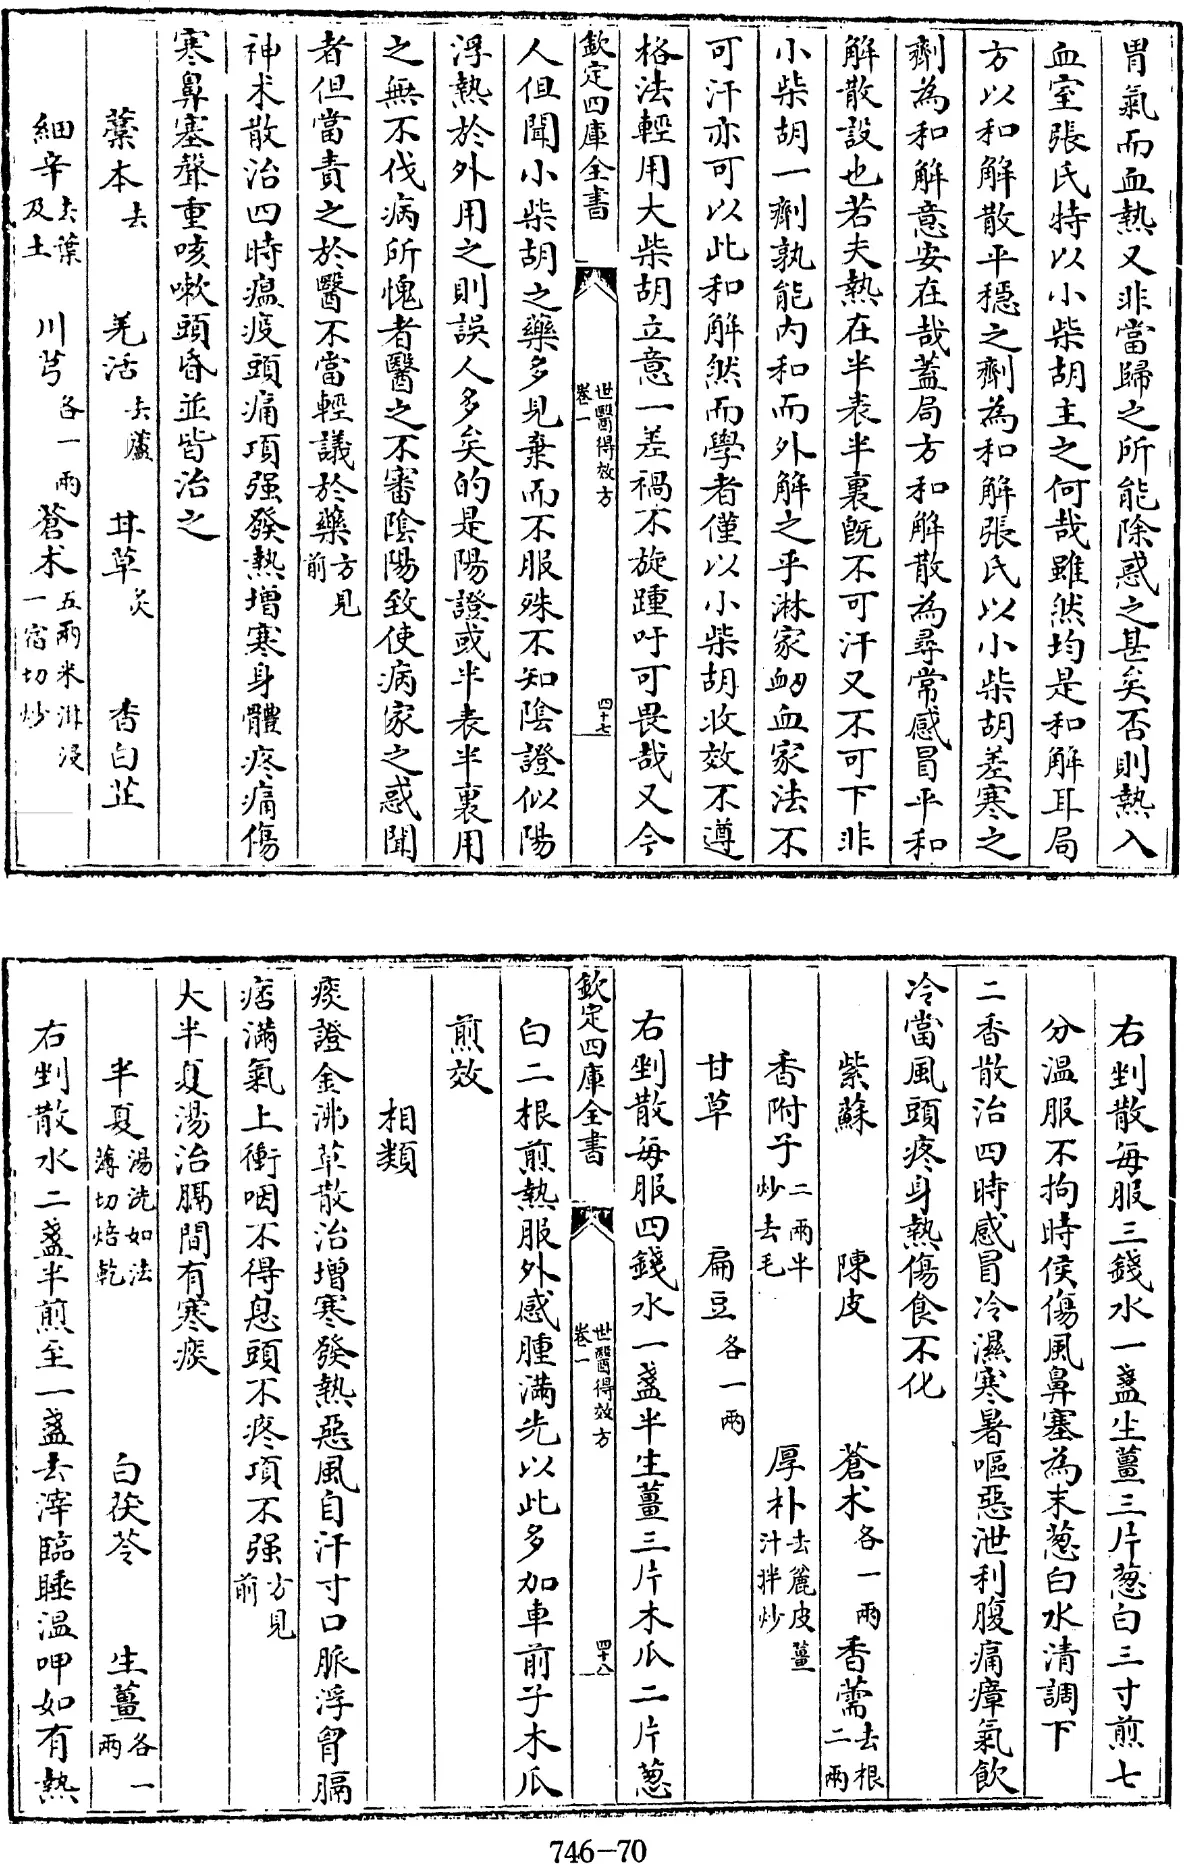 胃氣而血熱又非當歸之所能除惑之甚矣否則熱入
血室張氏特以小柴胡主之何哉雖然均是和解耳局
方以和解散平穩之劑為和解張氏以小柴胡差寒之
劑為和解意安在哉蓋局方和解散為尋常感冒平和
解散設也若夫熱在半表半裏既不可汗又不可下非
小柴胡一劑孰能內和而外解之乎淋家衂血家法不
可汗亦可以此和解然而學者僅以小柴胡收效不遵
格法輕用大柴胡立意一差禍不旋踵吁可畏哉又今
欽定四庫全書 世醫得效方 卷一 四十七
人但聞小柴胡之藥多見棄而不服殊不知陰證似陽
浮熱於外用之則誤人多矣的是陽證或半表半裏用
之無不伐病所愧者醫之不審陰陽致使病家之惑聞
者但當責之於醫不當輕議於藥方見前
神术散治四時瘟疫頭痛項强發熱增寒身體疼痛傷
寒鼻塞聲重咳嗽頭昏並皆治之
藁本去 羌活去蘆 甘草炙 香白芷
細辛去葉及土 川芎各一兩 蒼术五兩米泔浸一宿切炒
右剉散每服三錢水一盞生薑三片葱白三寸煎七
分温服不拘時侯傷風鼻塞為末葱白水清調下
二香散治四時感冒冷濕寒暑嘔惡泄利腹痛瘴氣飲
冷當風頭疼身熱傷食不化
紫蘇 陳皮 蒼术各一兩 香薷去根二兩
香附子二兩半炒去毛 厚朴去麄皮薑汁拌炒
甘草 扁豆各一兩
右剉散每服四錢水一盞半生薑三片木瓜二片葱
欽定四庫全書 世醫得效方 卷一 四十八
白二根煎熱服外感腫滿先以此多加車前子木瓜
煎效
相類
痰證金沸草散治增寒發熱惡風自汗寸口脈浮胷膈
痞滿氣上衝咽不得息頭不疼項不强方見前
大半夏湯治膈間有寒痰
半夏湯洗如法薄切焙乾 白茯苓 生薑各一兩
右剉散水二盞半煎至一盞去滓臨睡温呷如有熱
746-70